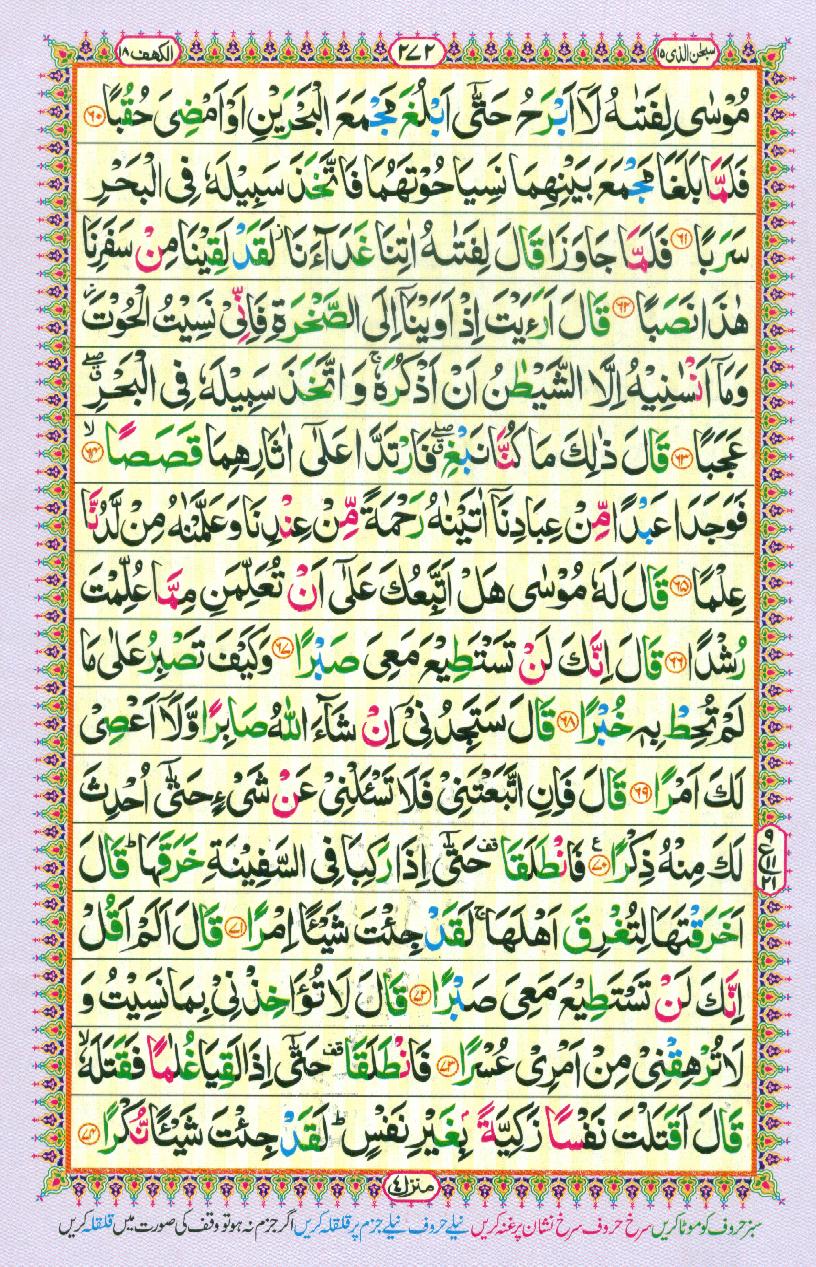 سبحٰن الذی ۱۵
۲۷۲
الکھف ۱۸
مُوْسٰى لِفَتٰىهُ لَاۤ اَبْرَحُ حَتّٰۤى اَبْلُغَ مَجْمَعَ الْبَحْرَيْنِ اَوْ اَمْضِىَ حُقُبًا ۶۰
فَلَمَّا بَلَغَا مَجْمَعَ بَيْنِهِمَا نَسِيَا حُوْتَهُمَا فَاتَّخَذَ سَبِيْلَهٗ فِى الْبَحْرِ
سَرَبًا ۶۱ فَلَمَّا جَاوَزَا قَالَ لِفَتٰىهُ اٰتِنَا غَدَآءَنَا ز لَقَدْ لَقِيْنَا مِنْ سَفَرِنَا
هٰذَا نَصَبًا ۶۲ قَالَ اَرَءَيْتَ اِذْ اَوَيْنَاۤ اِلَى الصَّخْرَةِ فَاِنِّىْ نَسِيْتُ الْحُوْتَ ز
وَمَاۤ اَنْسٰنِيْهُ اِلَّا الشَّيْطٰنُ اَنْ اَذْكُرَهٗ ۚ وَ اتَّخَذَ سَبِيْلَهٗ فِى الْبَحْرِ ۖ
عَجَبًا ۶۳ قَالَ ذٰلِكَ مَا كُنَّا نَبْغِ ۖ فَارْتَدَّا عَلٰۤى اٰثَارِهِمَا قَصَصًا ۙ ۶۴
فَوَجَدَا عَبْدًا مِّنْ عِبَادِنَاۤ اٰتَيْنٰهُ رَحْمَةً مِّنْ عِنْدِنَا وَعَلَّمْنٰهُ مِنْ لَّدُنَّا
عِلْمًا ۶۵ قَالَ لَهٗ مُوْسٰى هَلْ اَتَّبِعُكَ عَلٰۤى اَنْ تُعَلِّمَنِ مِمَّا عُلِّمْتَ
رُشْدًا ۶۶ قَالَ اِنَّكَ لَنْ تَسْتَطِيْعَ مَعِىَ صَبْرًا ۶۷ وَكَيْفَ تَصْبِرُ عَلٰى مَا
لَمْ تُحِطْ بِهٖ خُبْرًا ۶۸ قَالَ سَتَجِدُنِىْۤ اِنْ شَآءَ اللّٰهُ صَابِرًا وَّلَاۤ اَعْصِىْ
لَكَ اَمْرًا ۶۹ قَالَ فَاِنِ اتَّبَعْتَنِىْ فَلَا تَسْئَلْنِىْ عَنْ شَىْءٍ حَتّٰۤى اُحْدِثَ
لَكَ مِنْهُ ذِكْرًا ۷۰ ع فَانْطَلَقَا قف حَتّٰۤى اِذَا رَكِبَا فِى السَّفِيْنَةِ خَرَقَهَا ؕ قَالَ
اَخَرَقْتَهَا لِتُغْرِقَ اَهْلَهَا ۚ لَقَدْ جِئْتَ شَيْـًٔا اِمْرًا ۷۱ قَالَ اَلَمْ اَقُلْ
اِنَّكَ لَنْ تَسْتَطِيْعَ مَعِىَ صَبْرًا ۷۲ قَالَ لَا تُؤَاخِذْنِىْ بِمَا نَسِيْتُ وَ
لَا تُرْهِقْنِىْ مِنْ اَمْرِىْ عُسْرًا ۷۳ فَانْطَلَقَا قف حَتّٰۤى اِذَا لَقِيَا غُلٰمًا فَقَتَلَهٗ ۙ
قَالَ اَقَتَلْتَ نَفْسًا زَكِيَّةًۢ بِغَيْرِ نَفْسٍ ؕ لَقَدْ جِئْتَ شَيْـًٔا نُّكْرًا ۷۴
ع ۹ ۱۱ ۲۱
منزل ۴
سبز حروف کو موٹا کریں سرخ حروف سرخ نشان پر غنہ کریں نیلے حروف نیلے جزم پر قلقلہ کریں اگر جزم نہ ہو تو وقف کی صورت میں قلقلہ کریں